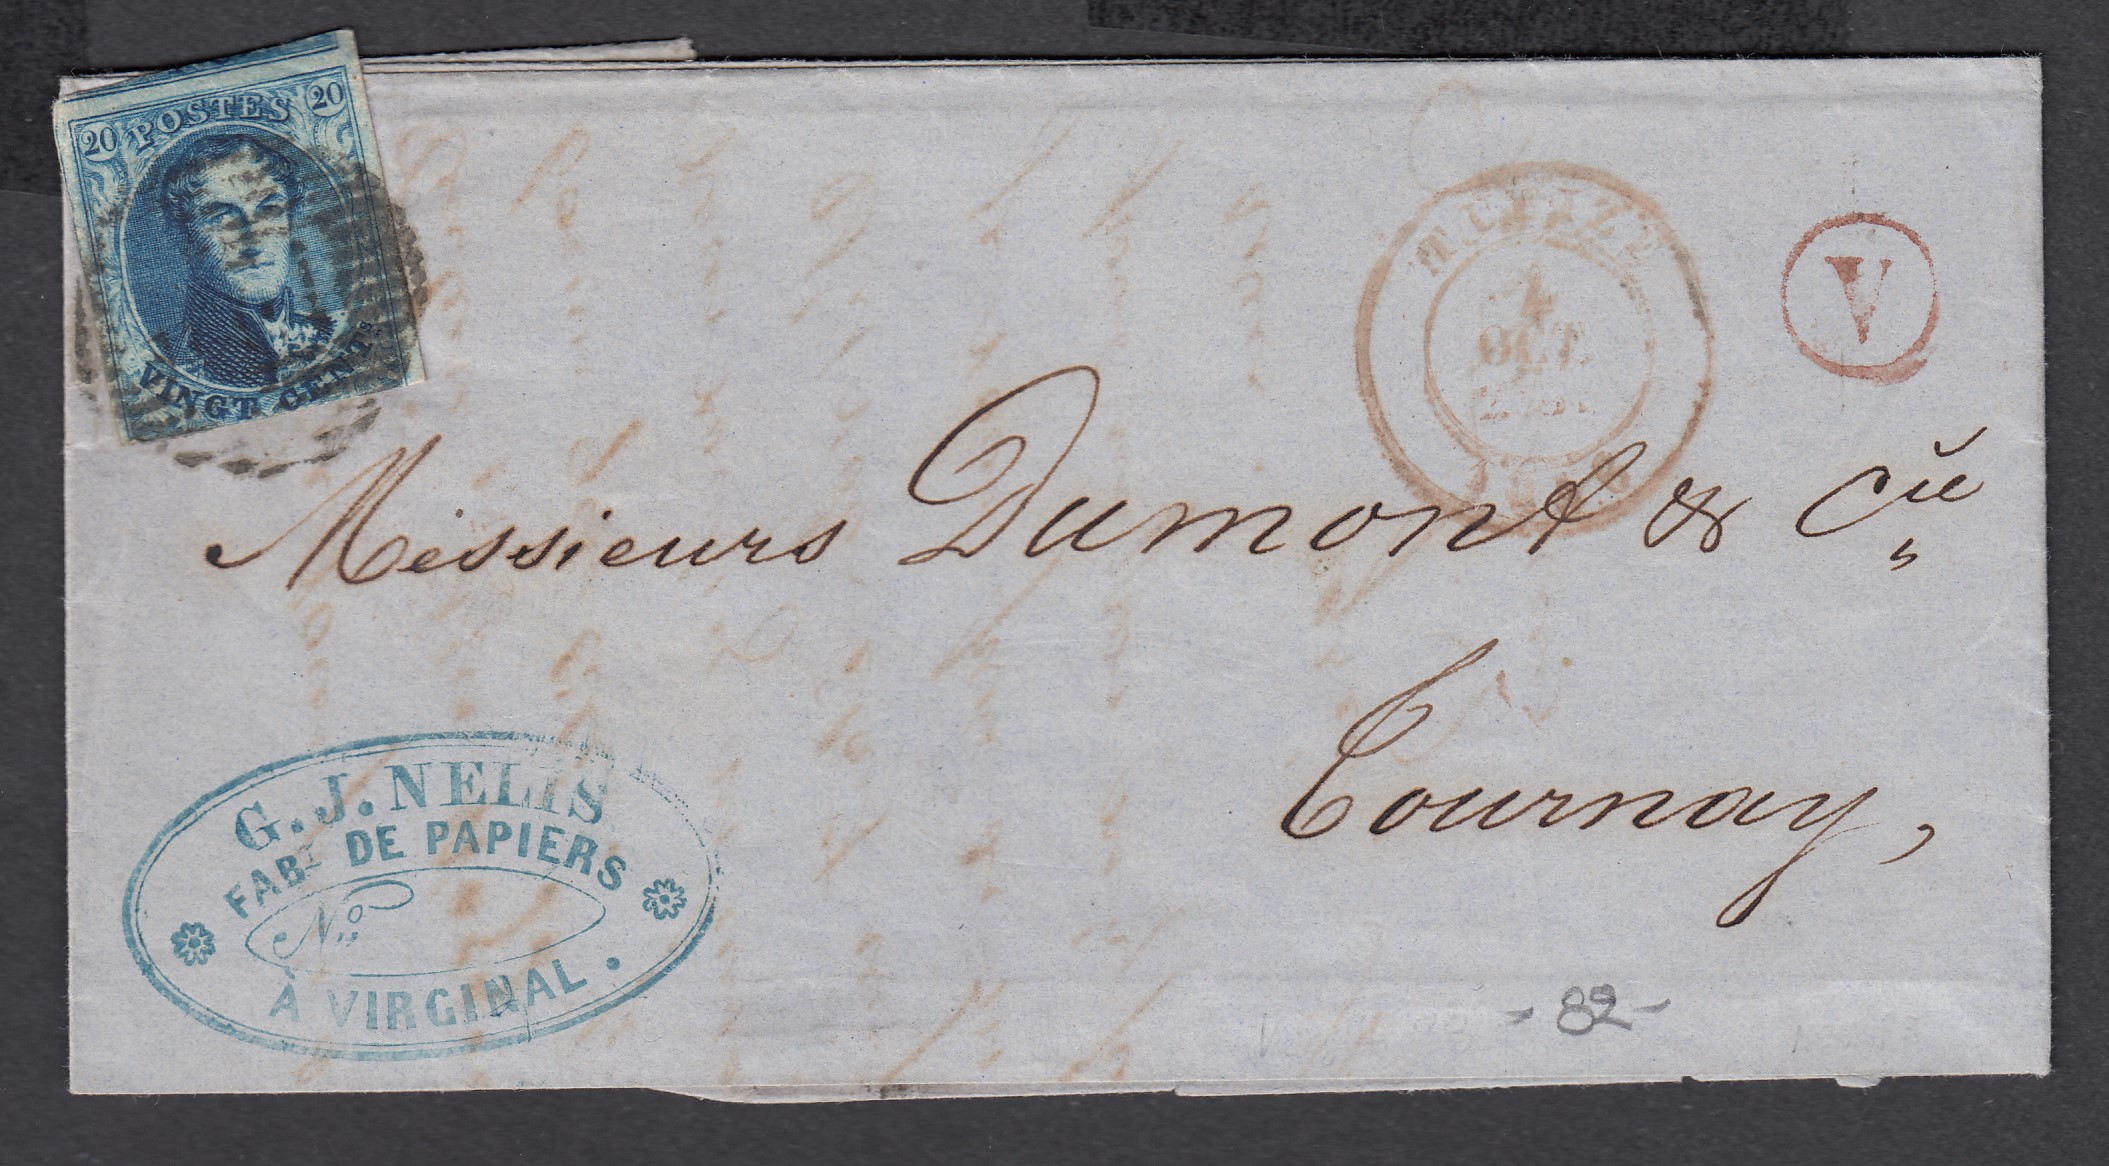 20 POSTES 20
VINGT CENTS
4
OCT
V
Messieurs Dumont & Cie
Tournay,
G. J. NELIS
FABT DE PAPIERS
No
À VIRGINAL.
- 82 -